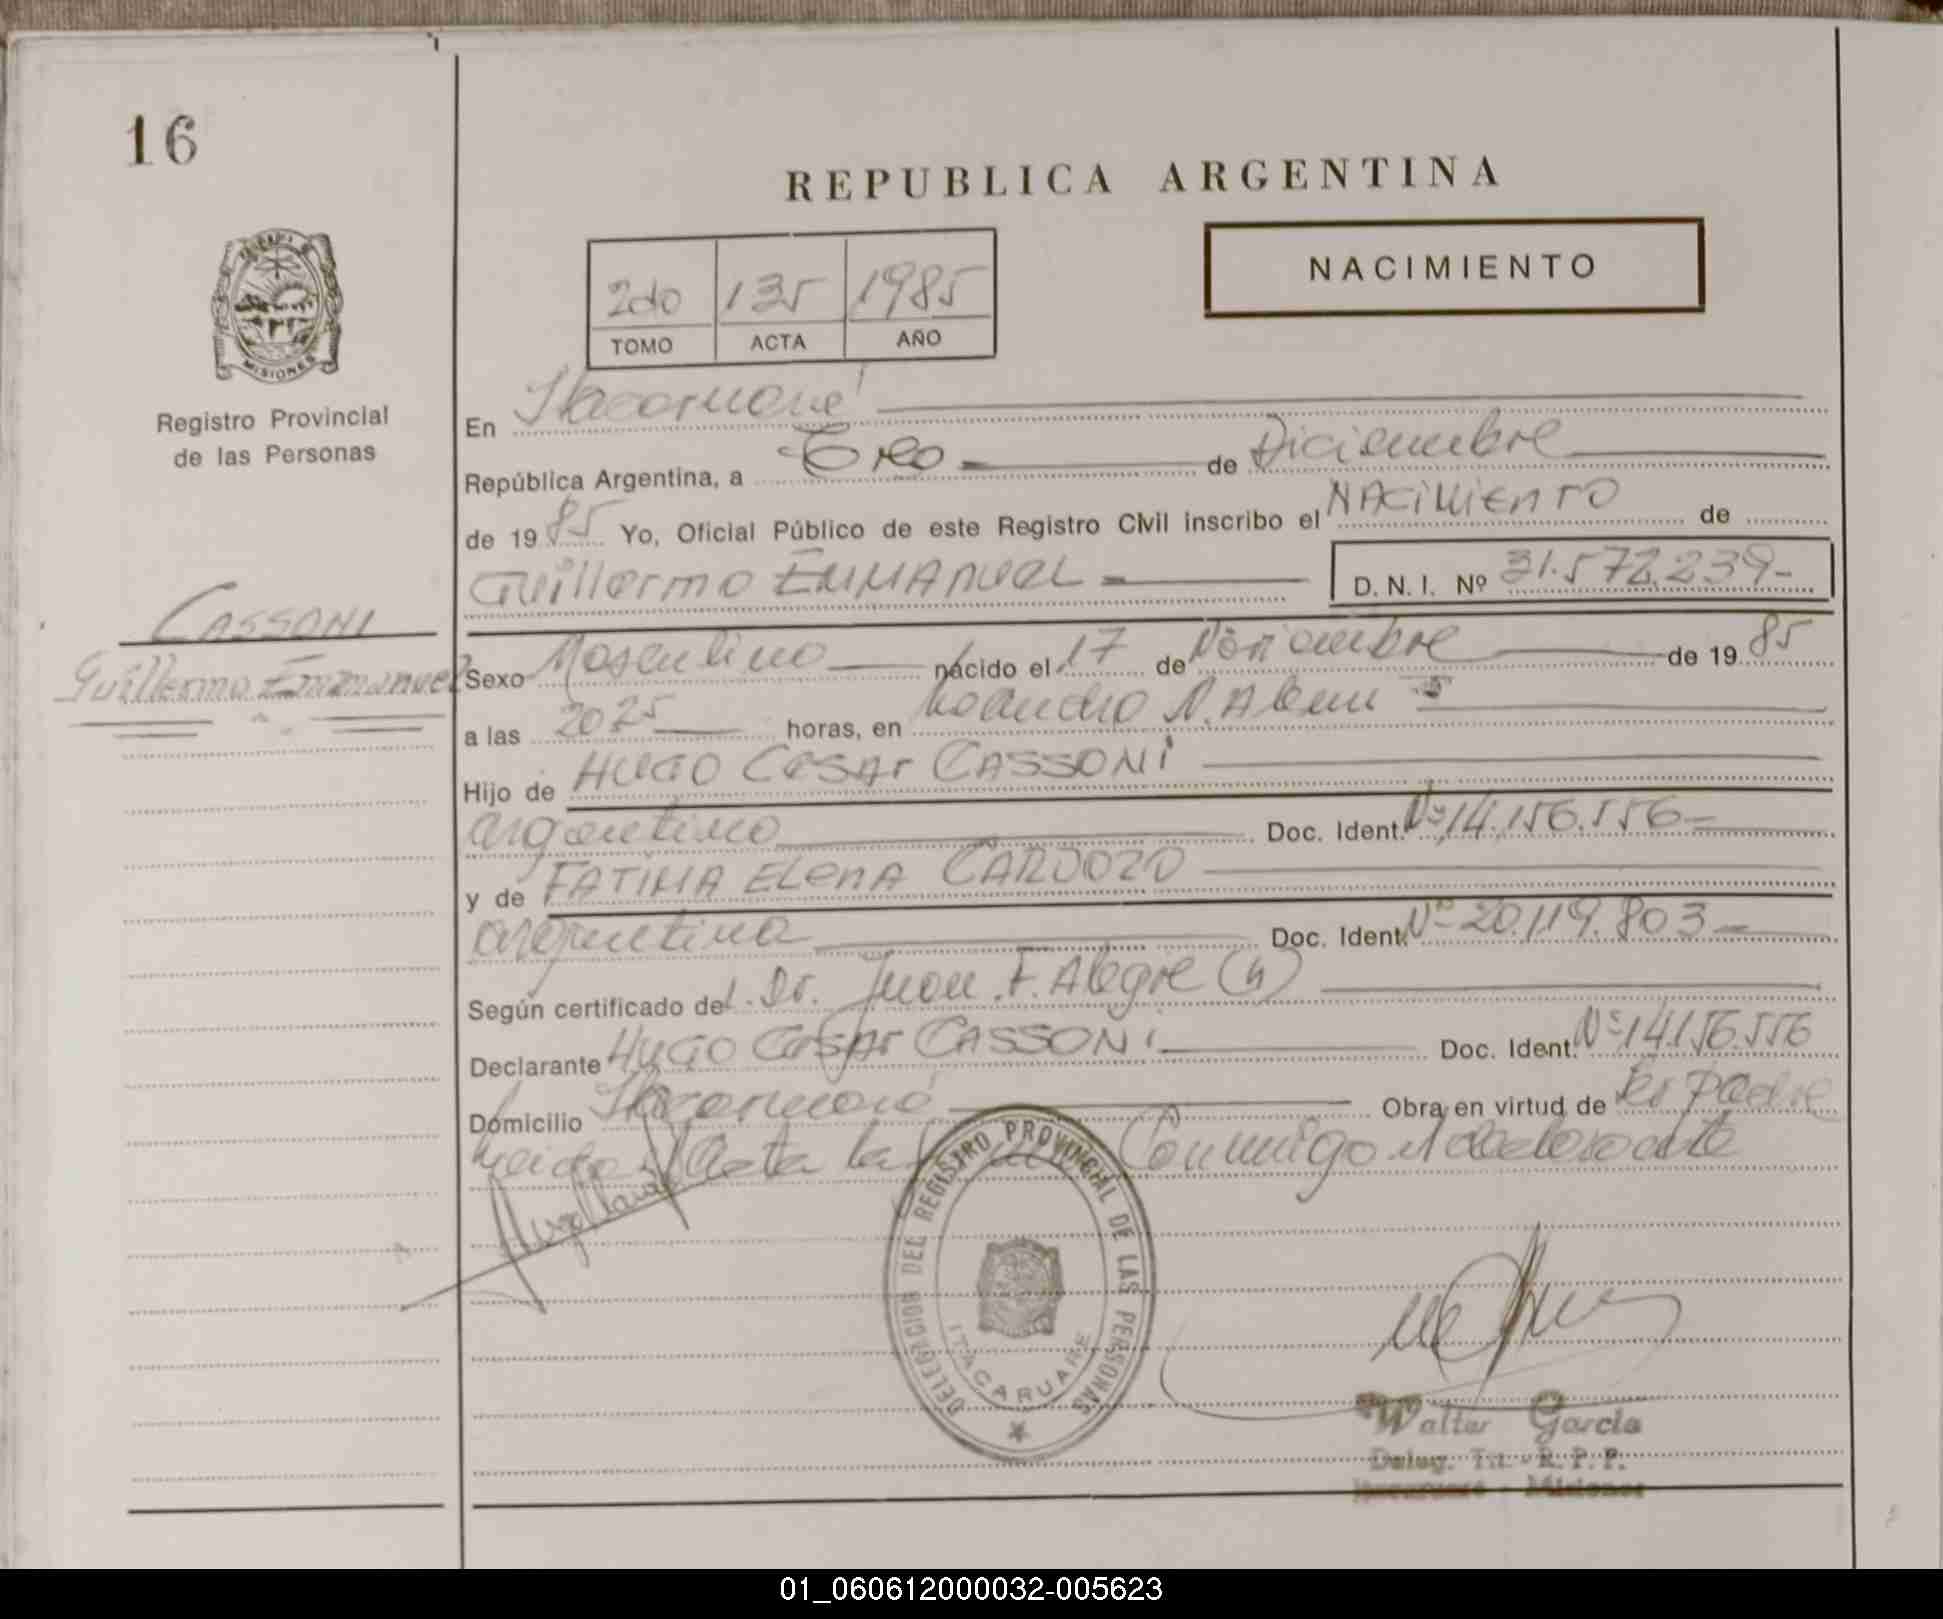 16
REPUBLICA ARGENTINA
NACIMIENTO
2do 135 1985
TOMO ACTA AÑO
MISIONES
Registro Provincial
de las Personas
En Itacaruaré
República Argentina, a Tres de Diciembre
de 1985 Yo, Oficial Público de este Registro Civil inscribo el NACIMIENTO de
Guillermo EMMANUEL D. N. I. Nº 31.572.239-
CASSONI
Guillermo Emmanuel
Sexo Masculino nacido el 17 de Noviembre de 1985
a las 2025 horas, en Leandro N. Alem
Hijo de HUGO CESAR CASSONI
argentino Doc. Ident. Nº 14.156.556-
y de FATIMA ELENA CARDOZO
argentina Doc. Ident. Nº 20.119.803-
Según certificado del Dr. Juan F. Alegre (h)
Declarante HUGO CESAR CASSONI Doc. Ident. Nº 14.156.556
Domicilio Itacaruaré Obra en virtud de Ser padre
Leida el Acta la Conmigo el declarante
DELEGACION DEL REGISTRO PROVINCIAL DE LAS PERSONAS
ITACARUARE
Walter García
Deleg. Tit. R.P.P.
Itacaruaré - Misiones
01_060612000032-005623